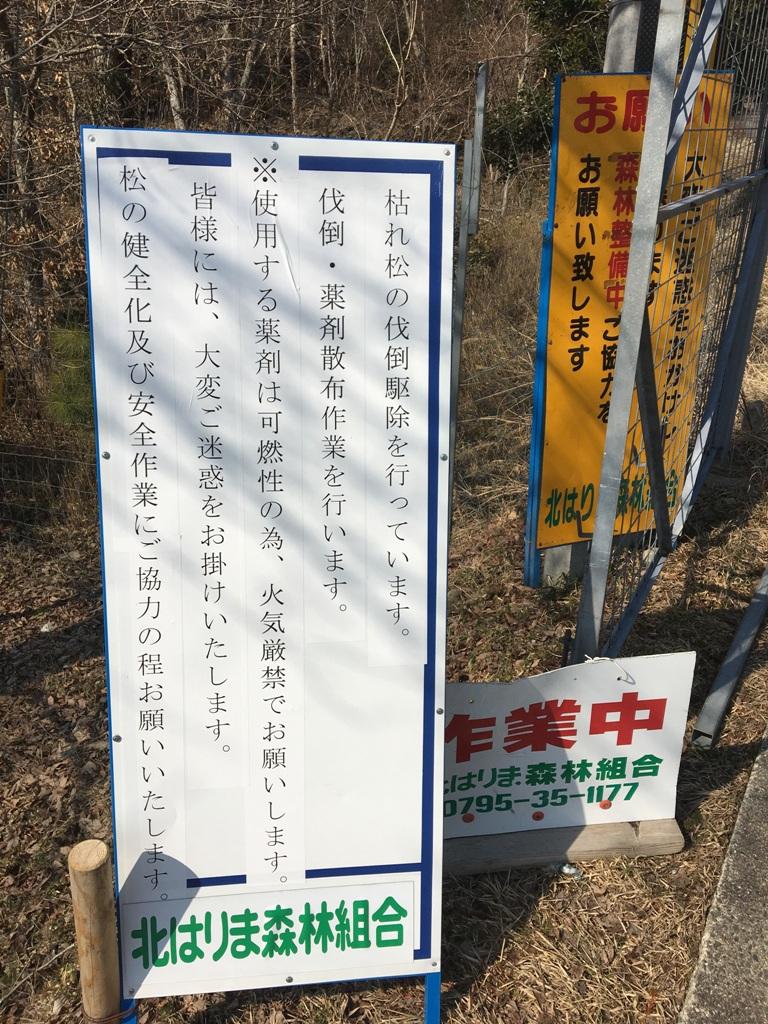 枯れ松の伐倒駆除を行っています。
伐倒・薬剤散布作業を行います。
※使用する薬剤は可燃性の為、火気厳禁でお願いします。
皆様には、大変ご迷惑をお掛けいたします。
松の健全化及び安全作業にご協力の程お願いいたします。
北はりま森林組合
お願い
大変ご迷惑をおかけ
森林整備中ご協力を
お願い致します
北はりま森林組合
作業中
北はりま森林組合
0795-35-1177